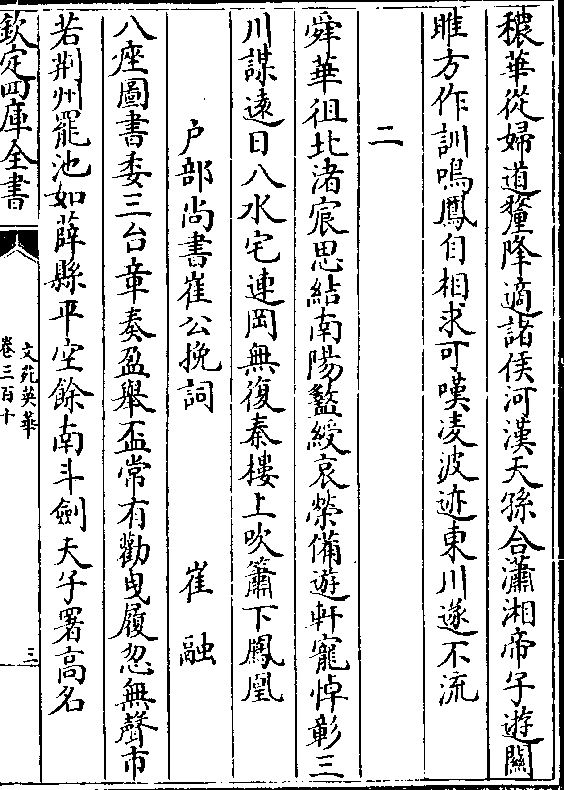 穠華從婦道釐降適諸侯河漢天孫合瀟湘帝子遊關
雎方作訓鳴鳳自相求可嘆凌波迹東川遂不流
二
舜華徂北渚宸思結南陽盭綬哀榮備遊軒寵悼彰三
川謀遠日八水宅連岡無復秦樓上吹簫下鳳凰
户部尚書崔公挽詞 崔融
八座圖書委三台章奏盈舉盃常有勸曳履忽無聲市
若荆州罷池如薛縣平空餘南斗劍天子署高名
欽定四庫全書
文苑英華
卷三百十
三